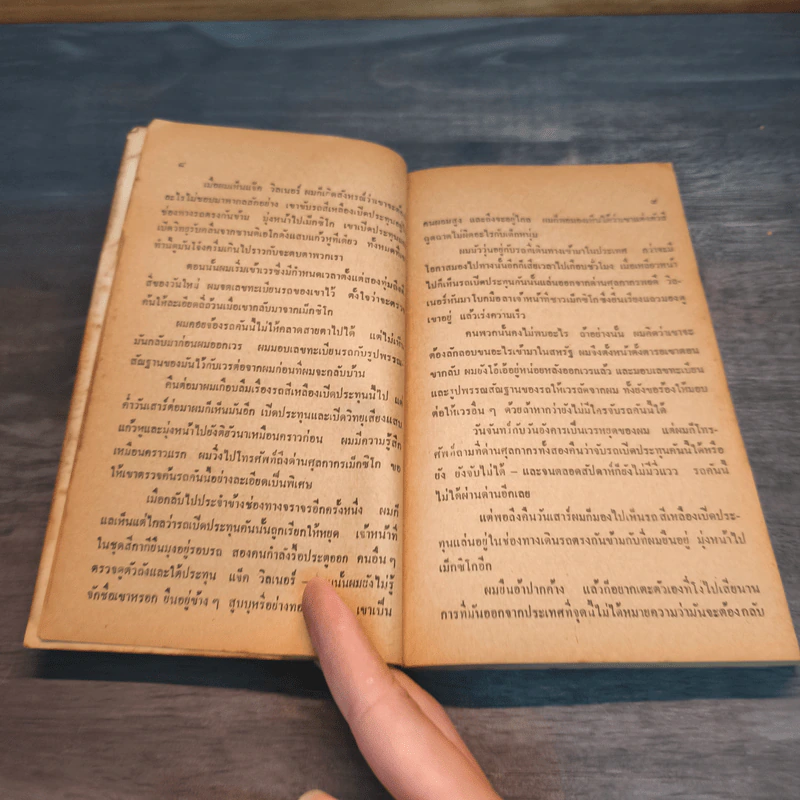 ๘
เมื่อผมเห็นแจ็ค วิลเนอร์ ผมก็เกิดสังหรณ์ว่าเขาจะต้อง
อะไรไม่ชอบมาพากลสักอย่าง เขาขับรถสีเหลืองเปิดประทุนอยู่ใน
ช่องทางรถตรงกันข้าม มุ่งหน้าไปเม็กซิโก เขาเปิดประทุนและ
เปิดวิทยุรบคลื่นจากซานดิเอโกดังแสบแก้วหูทีเดียว ทั้งหมดที่เขา
ทำนี้ดูมันโจ๋งครึ่มเกินไปราวกับจะตบตาพวกเรา
ตอนนั้นผมเริ่มเข้าเวรซึ่งมีกำหนดเวลาตั้งแต่สองทุ่มถึงตี
สี่ของวันใหม่ ผมจดเลขทะเบียนรถของเขาไว้ ตั้งใจว่าจะตรวจ
ค้นให้ละเอียดถี่ถ้วนเมื่อเขากลับมาจากเม็กซิโก
ผมคอยมองรถคันนี้ไม่ให้คลาดสายตาไปได้ แต่ไม่เห็น
มันกลับมาก่อนผมออกเวร ผมมอบเลขทะเบียนรถกับรูปพรรณ-
สัณฐานของมันไว้กับเวรต่อจากผมก่อนที่ผมจะกลับบ้าน
คืนต่อมาผมเกือบลืมเรื่องรถสีเหลืองเปิดประทุนนี้ไป แต่
ค่ำวันเสาร์ต่อมาผมก็เห็นมันอีก เปิดประทุนและเปิดวิทยุเสียงแสบ
แก้วหูและมุ่งหน้าไปยังติฮัวนาเหมือนคราวก่อน ผมมีความรู้สึก
เหมือนคราวแรก ผมวิ่งไปโทรศัพท์ถึงด่านศุลกากรเม็กซิโก ขอ
ให้เขาตรวจค้นรถคันนี้อย่างละเอียดเป็นพิเศษ
เมื่อกลับไปประจำข้างช่องทางจราจรอีกครั้งหนึ่ง ผมก็
แลเห็นแต่ไกลว่ารถเปิดประทุนคันนั้นถูกเรียกให้หยุด เจ้าหน้าที่
ในชุดสีกากียืนมุงอยู่รอบรถ สองคนกำลังรื้อประตูออก คนอื่น ๆ
ตรวจดูตัวถังและใต้ประทุน แจ็ค วิลเนอร์ – นั้นผมยังไม่รู้
จักชื่อเขาหรอก ยืนอยู่ข้าง ๆ สูบบุหรี่อย่าง เขาเป็น
๙
คนผอมสูง และทั้งจะอยู่ไกล ผมก็พอมองเห็นได้ว่าเขาแต่งตัวดี
ฉูดฉาดไม่ผิดอะไรกับเด็กหนุ่ม
ผมมัววุ่นอยู่กับรถที่เดินทางเข้ามาในประเทศ กว่าจะมี
โอกาสมองไปทางนั้นอีกก็เสียเวลาไปเกือบชั่วโมง เมื่อเหลียวหน้า
ไปก็เห็นรถเปิดประทุนคันนั้นแล่นออกจากด่านศุลกากรไปแล้ว วิล-
เนอร์หันมาโบกมืออำลาเจ้าหน้าที่ชาวเม็กซิโกซึ่งยืนเรียงแถวมองดู
เขาอยู่ แล้วเร่งความเร็ว
คนพวกนั้นคงไม่พบอะไร ถ้าอย่างนั้น ผมคิดว่าเขาจะ
ต้องลักลอบขนอะไรเข้ามาในสหรัฐ ผมจึงตั้งหน้าตั้งตารอเขาตอน
ขากลับ ผมยังโอ้เอ้อยู่หน่อยหลังออกเวรแล้ว และมอบเลขทะเบียน
และรูปพรรณสัณฐานของรถให้เวรถัดจากผม ทั้งยังขอร้องให้มอบ
ต่อให้เวรอื่น ๆ ด้วยถ้าหากว่ายังไม่มีใครจับรถคันนี้ได้
วันจันทร์กับวันอังคารเป็นเวรหยุดของผม แต่ผมก็โทร-
ศัพท์ถามที่ด่านศุลกากรทั้งสองคืนว่าจับรถเปิดประทุนคันนี้ได้หรือ
ยัง ยังจับไม่ได้ – และจนตลอดสัปดาห์ก็ยังไม่มีวี่แวว รถคันนี้
ไม่ได้ผ่านด่านอีกเลย
แต่พอถึงคืนวันเสาร์ผมก็มองไปเห็นรถสีเหลืองเปิดประ-
ทุนแล่นอยู่ในช่องทางเดินรถตรงกันข้ามกับที่ผมยืนอยู่ มุ่งหน้าไป
เม็กซิโกอีก
ผมยืนอ้าปากค้าง แล้วก็อยากเตะตัวเองที่โง่ไปเสียนาน
การที่มันออกจากประเทศที่จุดนี้ไม่ได้หมายความว่ามันจะต้องกลับ